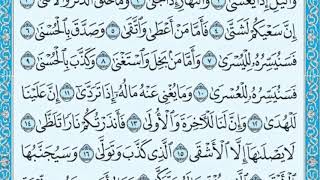 وَٱلَّيۡلِ إِذَا يَغۡشَىٰ ١ وَٱلنَّهَارِ إِذَا تَجَلَّىٰ ٢ وَمَا خَلَقَ ٱلذَّكَرَ وَٱلۡأُنثَىٰٓ ٣
إِنَّ سَعۡيَكُمۡ لَشَتَّىٰ ٤ فَأَمَّا مَنۡ أَعۡطَىٰ وَٱتَّقَىٰ ٥ وَصَدَّقَ بِٱلۡحُسۡنَىٰ ٦
فَسَنُيَسِّرُهُۥ لِلۡيُسۡرَىٰ ٧ وَأَمَّا مَنۢ بَخِلَ وَٱسۡتَغۡنَىٰ ٨ وَكَذَّبَ بِٱلۡحُسۡنَىٰ ٩
فَسَنُيَسِّرُهُۥ لِلۡعُسۡرَىٰ ١٠ وَمَا يُغۡنِي عَنۡهُ مَالُهُۥٓ إِذَا تَرَدَّىٰٓ ١١ إِنَّ عَلَيۡنَا
لَلۡهُدَىٰ ١٢ وَإِنَّ لَنَا لَلۡأٓخِرَةَ وَٱلۡأُولَىٰ ١٣ فَأَنذَرۡتُكُمۡ نَارٗا تَلَظَّىٰ ١٤
لَا يَصۡلَىٰهَآ إِلَّا ٱلۡأَشۡقَى ١٥ ٱلَّذِي كَذَّبَ وَتَوَلَّىٰ ١٦ وَسَيُجَنَّبُهَا